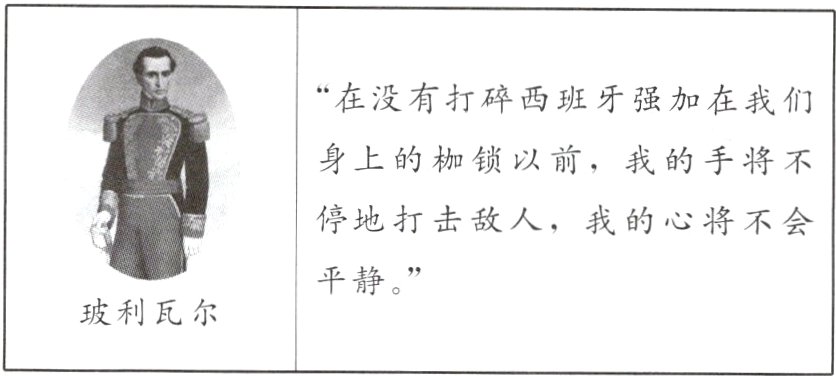 玻利瓦尔
“在没有打碎西班牙强加在我们
身上的枷锁以前，我的手将不
停地打击敌人，我的心将不会
平静。”